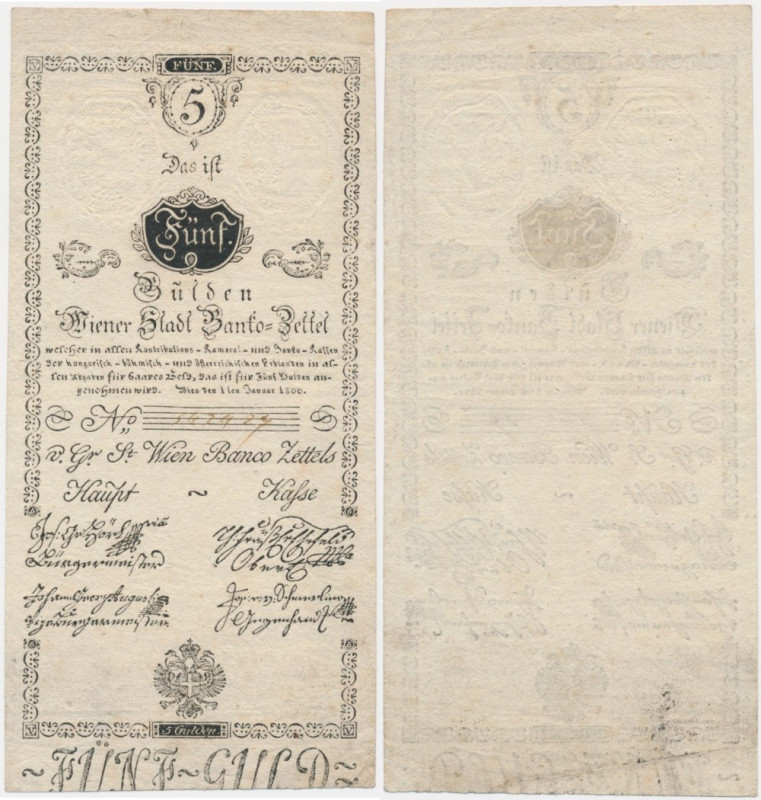 FÜNF
5
Das ist
Fünf.
Gulden
Wiener Stadt Banko=Zettel
welcher in allen Kontributions- Kameral- und Banko-Kassen
der hungarisch- böhmisch- und österreichischen Erblanden in al-
len Abgaben für baares Geld, das ist für Fünf Gulden an-
genohmen wird. Wien den 1ten Januar 1800.
No 162927
v. Gr. St. Wien Banco Zettels
Haupt ~ Kasse
Bürgermeister
5 Gulden.
~FÜNF~GULD~